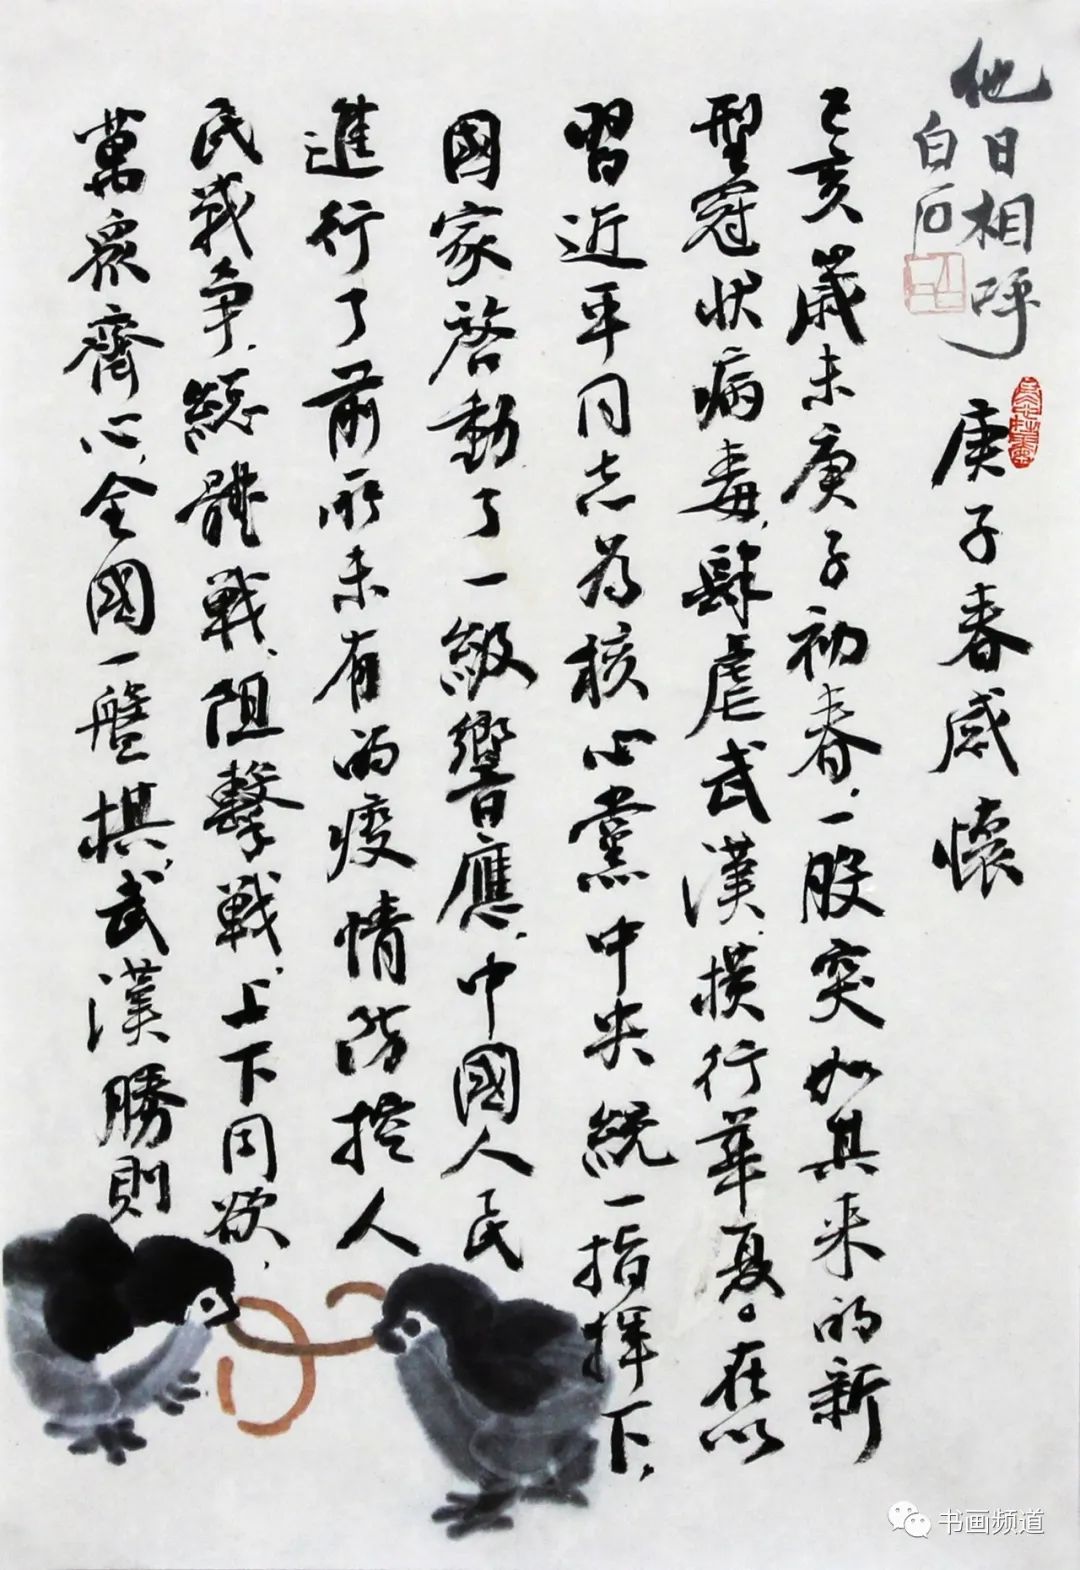 他日相呼
白石
庚子春感懷
己亥歲末庚子初春，一股突如其来的新
型冠状病毒，肆虐武漢，横行華夏。在以
習近平同志为核心党中央統一指揮下，
國家啓動了一級響應，中國人民
進行了前所未有的疫情防控人
民战争，總體戰，阻擊戰，上下同欲，
萬衆齊心，全國一盤棋，武漢勝則
书画频道